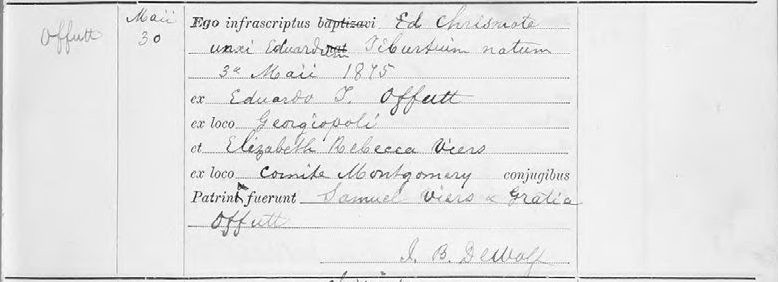 Offutt
Maii
30
Ego infrascriptus baptizavi Ed Chrismate
unxi Eduardum Tiburtium natum
3a Maii 1875
ex Eduardo T. Offutt
ex loco Georgiopoli
et Elizabeth Rebecca Viers
ex loco Comite Montgomery conjugibus
Patrini fuerunt Samuel Viers & Gratia
Offutt
J. B. DeWolf